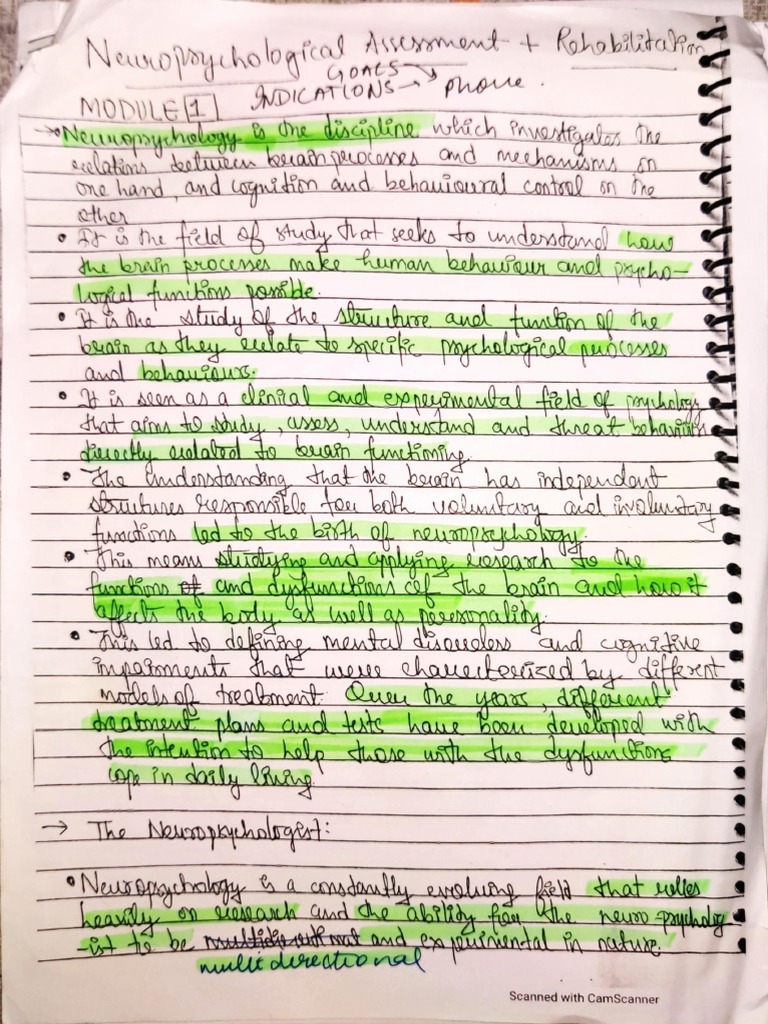 Neuropsychological Assessment + Rehabilitation
GOALS →
INDICATIONS → phone.
MODULE 1
→ Neuropsychology is the discipline which investigates the
relations between brain processes and mechanisms on
one hand, and cognition and behavioural control on the
other
• It is the field of study that seeks to understand how
the brain processes make human behaviour and psycho-
logical functions possible.
• It is the study of the structure and function of the
brain as they relate to specific psychological processes
and behaviours.
• It is seen as a clinical and experimental field of psychology
that aims to study, assess, understand and threat behaviours
directly related to brain functioning.
• The understanding that the brain has independent
structures responsible for both voluntary and involuntary
functions led to the birth of neuropsychology.
• This means studying and applying research to the
functions of and dysfunctions of the brain and how it
affects the body as well as personality.
• This led to defining mental disorders and cognitive
impairments that were characterized by different
models of treatment. Over the years, different
treatment plans and tests have been developed with
the intention to help those with the dysfunctions
cope in daily living.
→ The Neuropsychologist:
• Neuropsychology is a constantly evolving field that relies
heavily on research and the ability for the neuro psycholog
-ist to be and experimental in nature.
multidirectional
Scanned with CamScanner